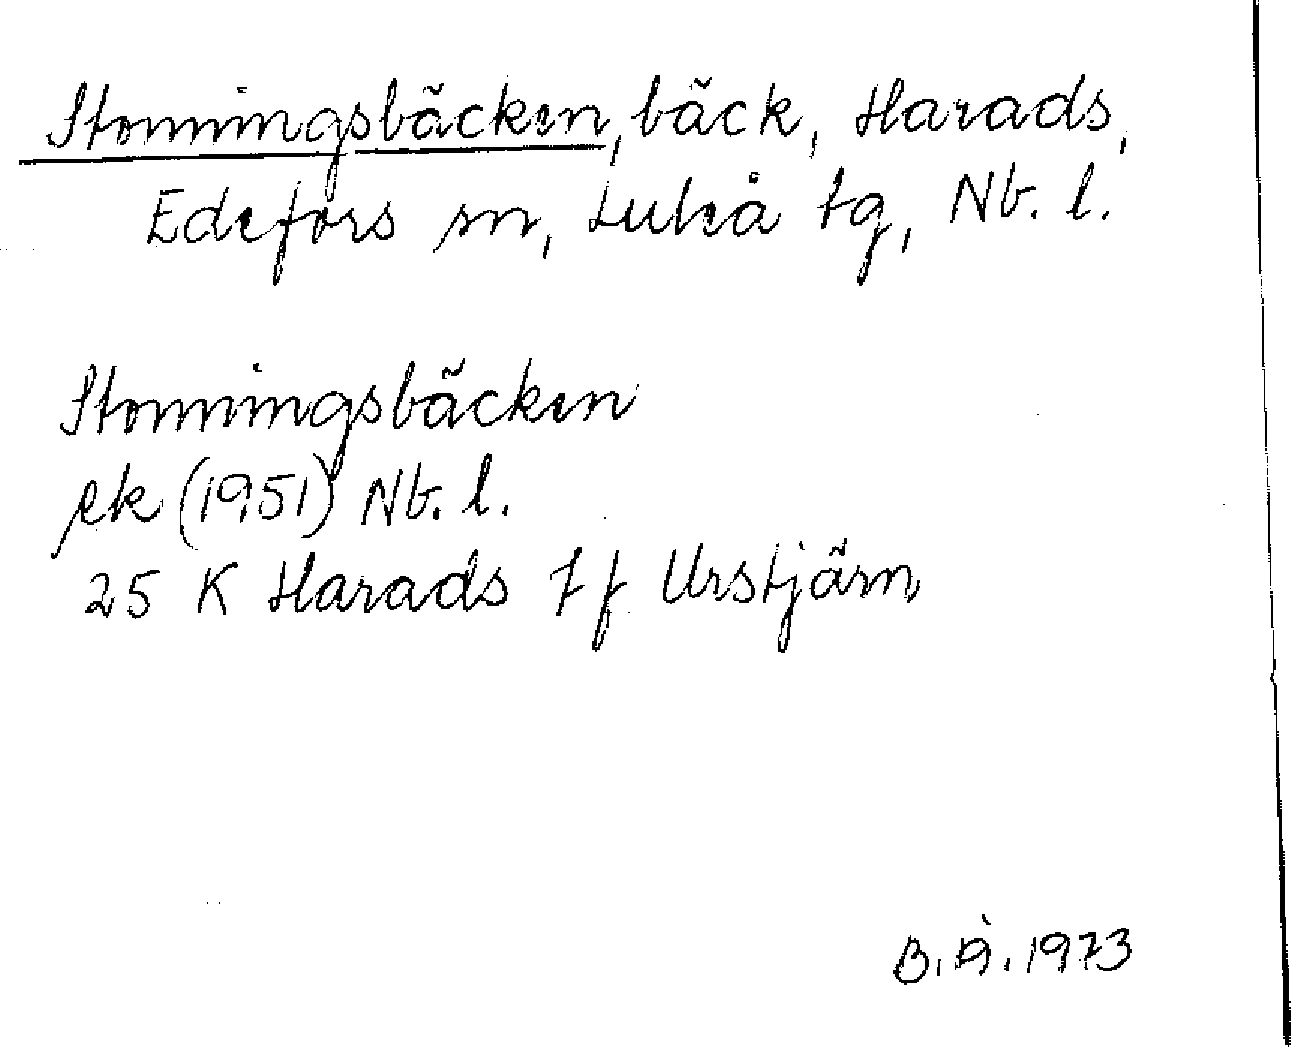 Stormingsbäcken, bäck, Harads,
Edefors sn, Luleå tg, Nb. l.
Stormingsbäcken
ek (1951) Nb. l.
25 K Harads 7 f Urstjärn
B.Å. 1973